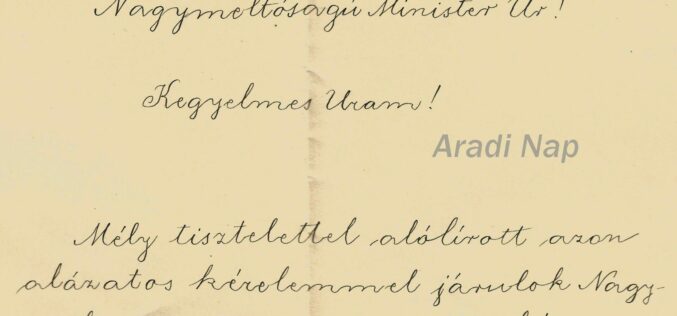 Nagymeltóságú Minister Úr!
Kegyelmes Uram!
Aradi Nap
Mély tisztelettel alólírott azon
alázatos kérelemmel járulok Nagy-